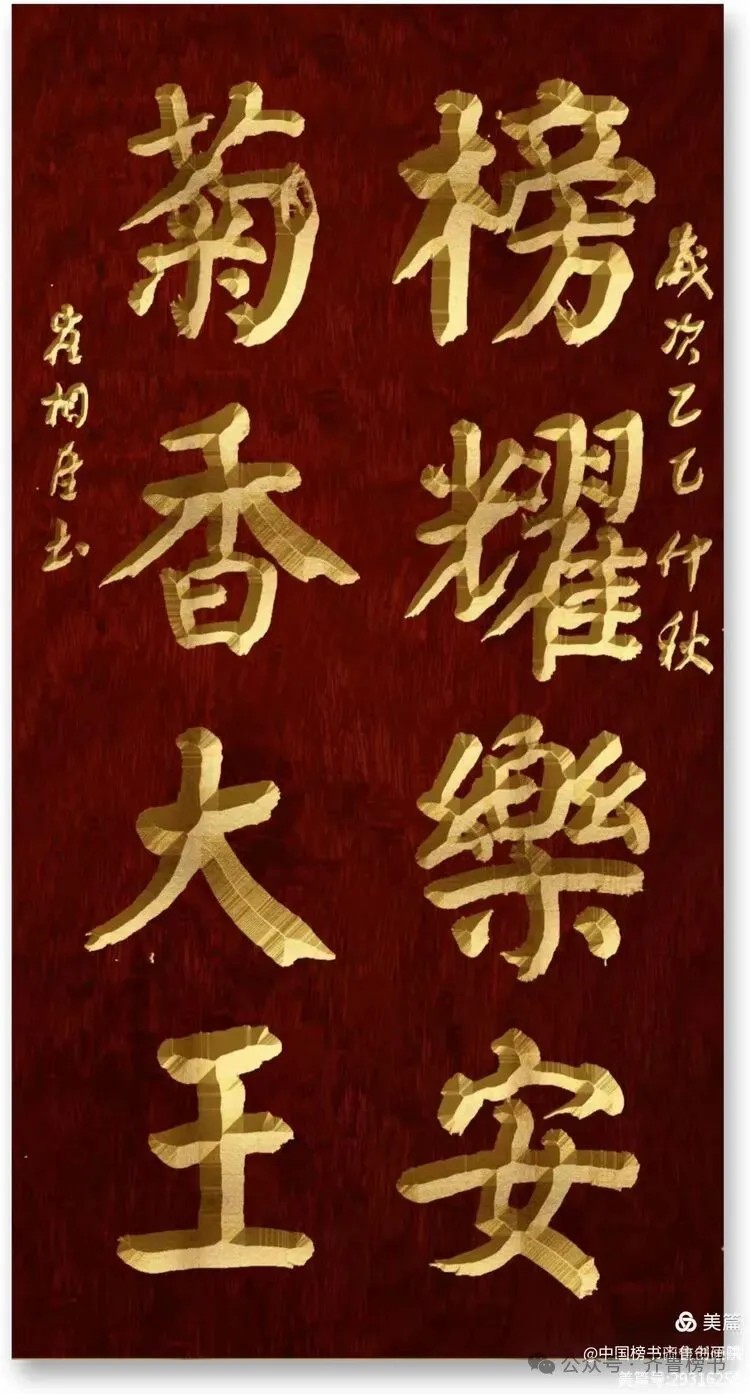 歲次乙巳仲秋
榜耀樂安
菊香大王
崔相书
美篇
@中国榜书齐鲁书画院
公众号：齐鲁榜书
美篇号:2931625